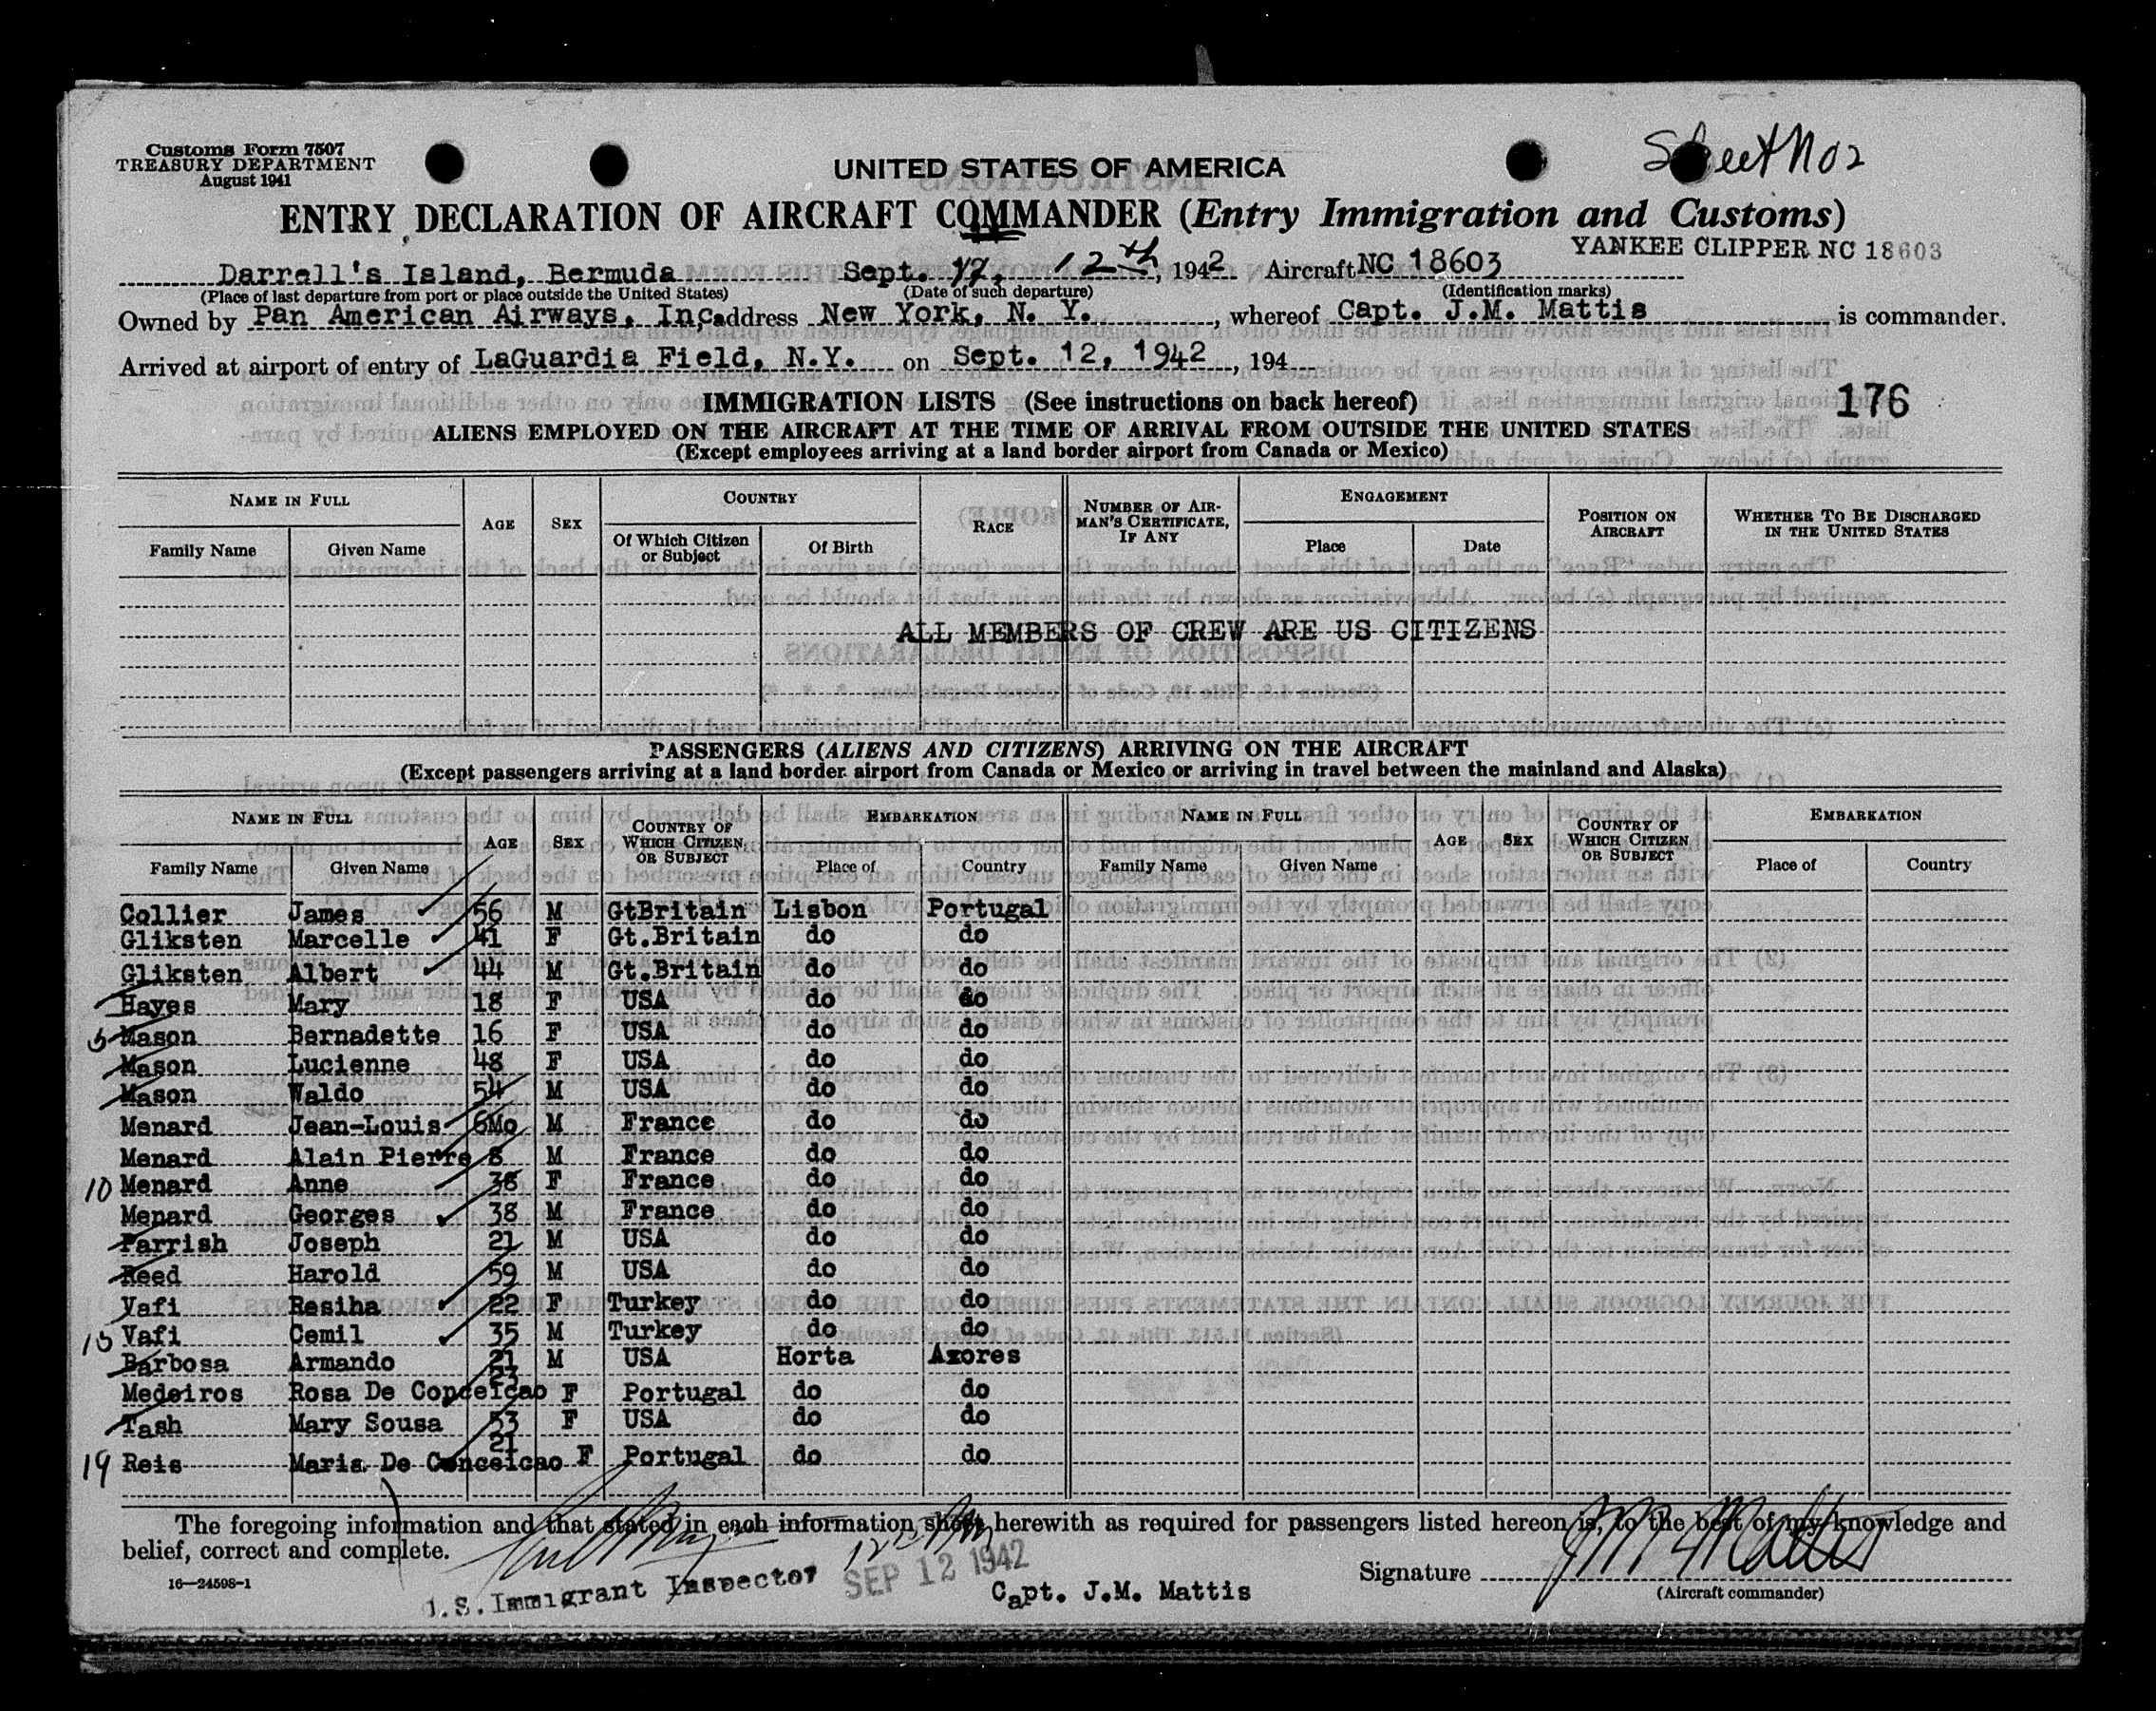 Customs Form 7507
TREASURY DEPARTMENT
August 1941
UNITED STATES OF AMERICA
Sheet No 2
ENTRY DECLARATION OF AIRCRAFT COMMANDER (Entry Immigration and Customs)
YANKEE CLIPPER NC 18603
Darrell's Island, Bermuda Sept. 17, 12th, 1942 Aircraft NC 18603
(Place of last departure from port or place outside the United States) (Date of such departure) (Identification marks)
Owned by Pan American Airways, Inc, address New York, N. Y. , whereof Capt. J.M. Mattis is commander.
Arrived at airport of entry of LaGuardia Field, N.Y. on Sept. 12, 1942, 194
IMMIGRATION LISTS (See instructions on back hereof)
176
ALIENS EMPLOYED ON THE AIRCRAFT AT THE TIME OF ARRIVAL FROM OUTSIDE THE UNITED STATES
(Except employees arriving at a land border airport from Canada or Mexico)
NAME IN FULL AGE SEX COUNTRY RACE NUMBER OF AIRMAN'S CERTIFICATE, IF ANY ENGAGEMENT POSITION ON AIRCRAFT WHETHER TO BE DISCHARGED IN THE UNITED STATES
Family Name Given Name Of Which Citizen or Subject Of Birth Place Date
ALL MEMBERS OF CREW ARE US CITIZENS
PASSENGERS (ALIENS AND CITIZENS) ARRIVING ON THE AIRCRAFT
(Except passengers arriving at a land border airport from Canada or Mexico or arriving in travel between the mainland and Alaska)
NAME IN FULL AGE SEX COUNTRY OF WHICH CITIZEN OR SUBJECT EMBARKATION NAME IN FULL AGE SEX COUNTRY OF WHICH CITIZEN OR SUBJECT EMBARKATION
Family Name Given Name Place of Country Family Name Given Name Place of Country
Collier James 56 M GtBritain Lisbon Portugal
Gliksten Marcelle 41 F Gt.Britain do do
Gliksten Albert 44 M Gt.Britain do do
Hayes Mary 18 F USA do do
5 Mason Bernadette 16 F USA do do
Mason Lucienne 48 F USA do do
Mason Waldo 54 M USA do do
Menard Jean-Louis 6Mo M France do do
Menard Alain Pierre 8 M France do do
10 Menard Anne 38 F France do do
Menard Georges 38 M France do do
Parrish Joseph 21 M USA do do
Reed Harold 59 M USA do do
Vafi Resiha 22 F Turkey do do
15 Vafi Cemil 35 M Turkey do do
Barbosa Armando 21 M USA Horta Azores
Medeiros Rosa De Conceicao 23 F Portugal do do
Tash Mary Sousa 53 F USA do do
19 Reis Maria De Conceicao 21 F Portugal do do
The foregoing information and that stated in each information sheet herewith as required for passengers listed hereon is, to the best of my knowledge and
belief, correct and complete.
16—24598-1
U.S. Immigrant Inspector SEP 12 1942 Capt. J.M. Mattis Signature J M Mattis
(Aircraft commander)